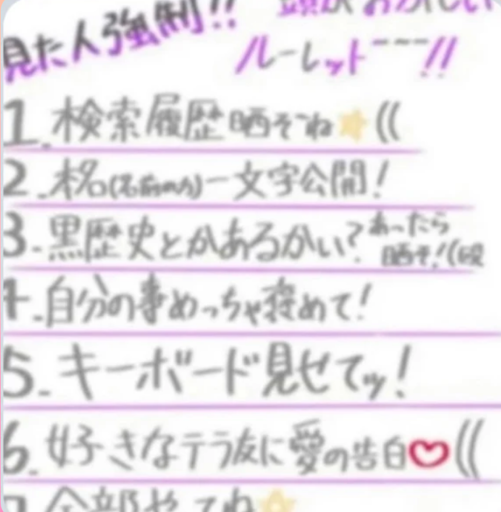 頭がおかしい
見た人強制!!
ルーレット~~~!!
1. 検索履歴晒そね☆((
2. 本名(名前のみ)一文字公開!
3. 黒歴史とかあるかい?あったら晒そ!((殴
4. 自分の事めっちゃ褒めて!
5. キーボード見せてッ!
6. 好きなテラ友に愛の告白♡((
7. 全部やってね☆